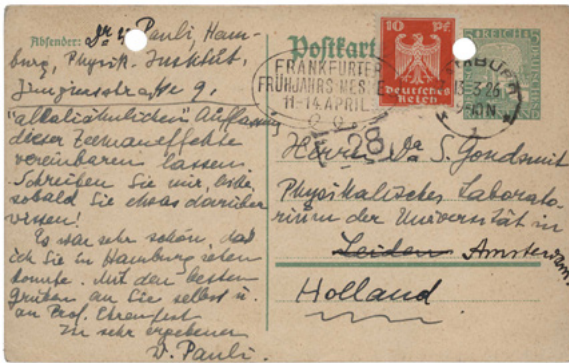 Absender: Dr. W. Pauli, Ham-
burg, Physik. Institut,
Jungiusstraße 9.
"alkaliähnlichen" Auffassung
dieser Zeemaneffekte
vereinbaren lassen.
Schreiben Sie mir, bitte,
sobald Sie etwas darüber
wissen!
Es war sehr schön, daß
ich Sie in Hamburg sehen
konnte. Mit den besten
Grüßen an Sie selbst u.
an Prof. Ehrenfest
Ihr sehr ergebener
W. Pauli.
Postkart
10 Pf.
Deutsches
Reich
REICH
FRANKFURTER
FRÜHJAHRSMESSE
11-14 APRIL
3.26
N
1
28
Herrn S. Goudsmit
Physikalisches Laborato-
rium der Universität in
Leiden Amsterdam
Holland